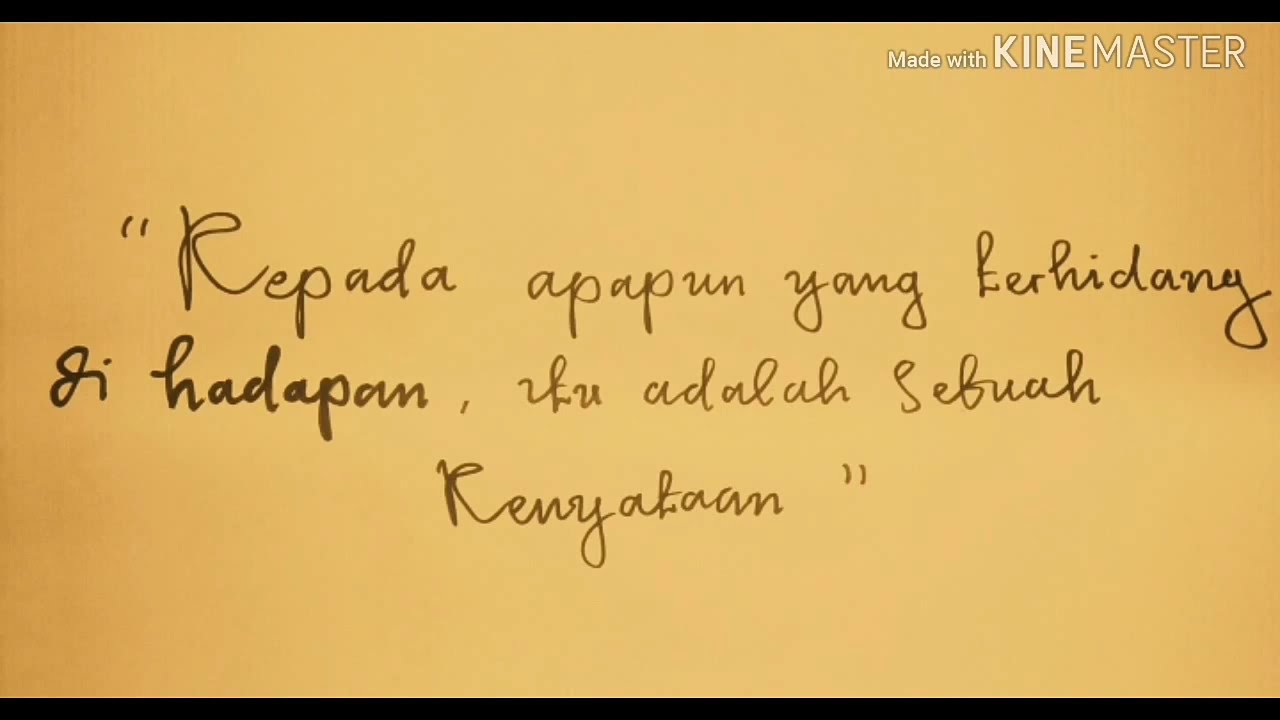 Made with KINEMASTER
“Kepada apapun yang terhidang
di hadapan, itu adalah Sebuah
Kenyataan”